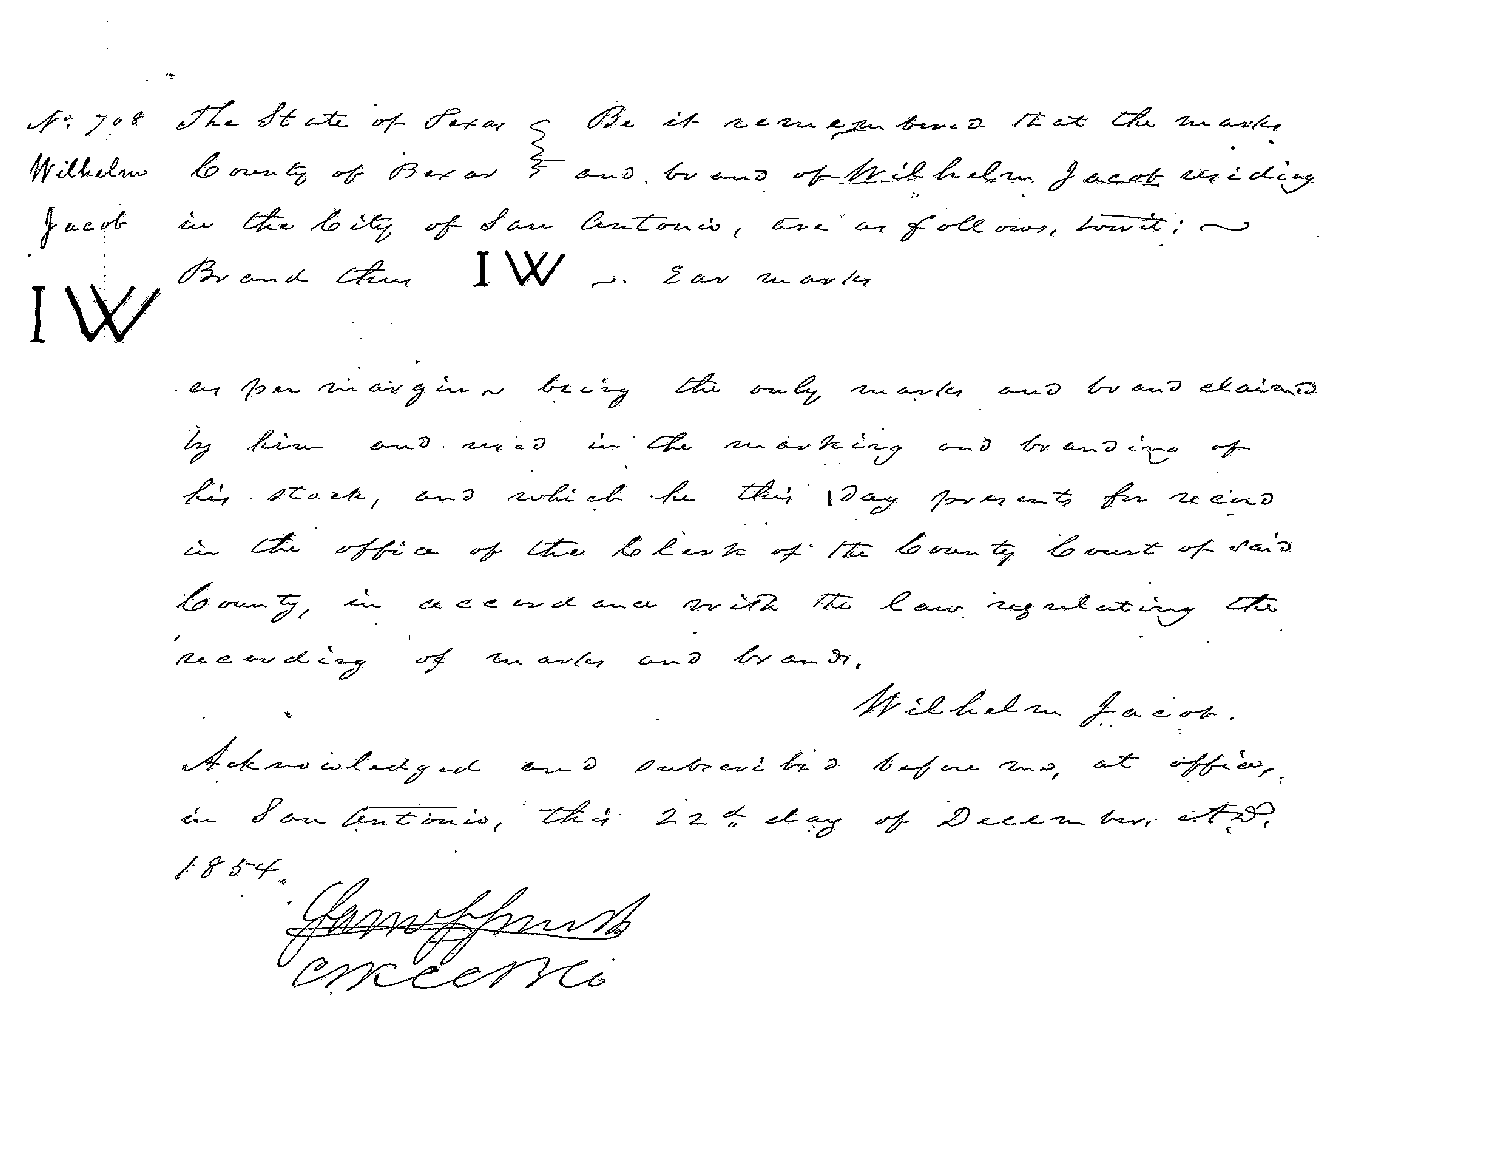 No. 708 The State of Texas } Be it remembered that the marks
Wilhelm County of Bexar } and brand of Wilhelm Jacob residing
Jacob in the City of San Antonio, are as follows, towit: ~
Brand thus IW ~. Ear marks
IW
as per margin ~ being the only marks and brand claimed
by him and used in the marking and branding of
his stock, and which he this Day presents for record
in the office of the Clerk of the County Court of said
County, in accordance with the law regulating the
recording of marks and brands.
Wilhelm Jacob.
Acknowledged and subscribed before me, at office,
in San Antonio, this 22d day of December, A.D.
1854.